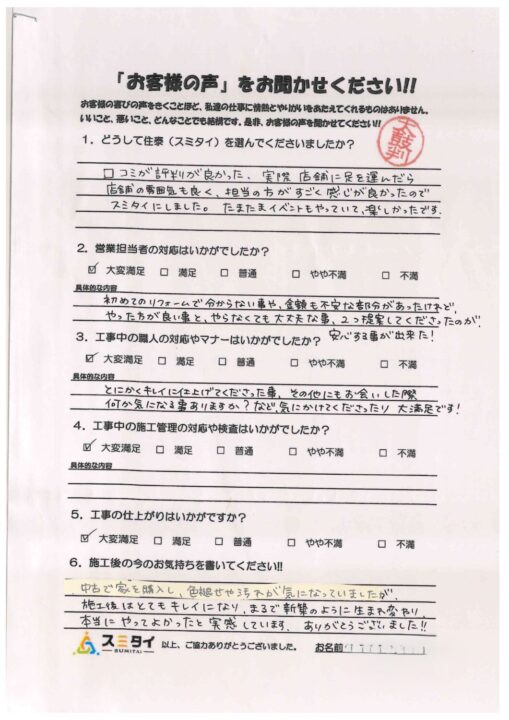 「お客様の声」をお聞かせください!!
お客様の喜びの声をきくことほど、私達の仕事に情熱とやりがいをあたえてくれるものはありません。
いいこと、悪いこと、どんなことでも結構です。是非、お客様の声を聞かせてください!!
太鼓判
1．どうして住泰（スミタイ）を選んでくださいましたか？
口コミが評判が良かった、実際店舗に足を運んだら
店舗の雰囲気も良く、担当の方がすごく感じが良かったので
スミタイにしました。たまたまイベントもやっていて、楽しかったです.
2．営業担当者の対応はいかがでしたか？
☑ 大変満足 □ 満足 □ 普通 □ やや不満 □ 不満
具体的な内容
初めてのリフォームで分からない事や、金額も不安な部分があったけれど、
やった方が良い事と、やらなくても大丈夫な事、2つ提案してくださったのが
安心する事が出来た!
3．工事中の職人の対応やマナーはいかがでしたか？
☑ 大変満足 □ 満足 □ 普通 □ やや不満 □ 不満
具体的な内容
とにかくキレイに仕上げてくださった事、その他にもお会いした際
何か気になる事ありますか？など、気にかけてくださったり大満足です!
4．工事中の施工管理の対応や検査はいかがでしたか？
☑ 大変満足 □ 満足 □ 普通 □ やや不満 □ 不満
具体的な内容
5．工事の仕上がりはいかがですか？
☑ 大変満足 □ 満足 □ 普通 □ やや不満 □ 不満
6．施工後の今のお気持ちを書いてください!!
中古で家を購入し、色褪せや汚れが気になっていましたが、
施工後はとてもキレイになり、まるで新築のように生まれ変わり、
本当にやってよかったと実感しています、ありがとうございました!!
スミタイ
SUMITAI
以上、ご協力ありがとうございました。 お名前